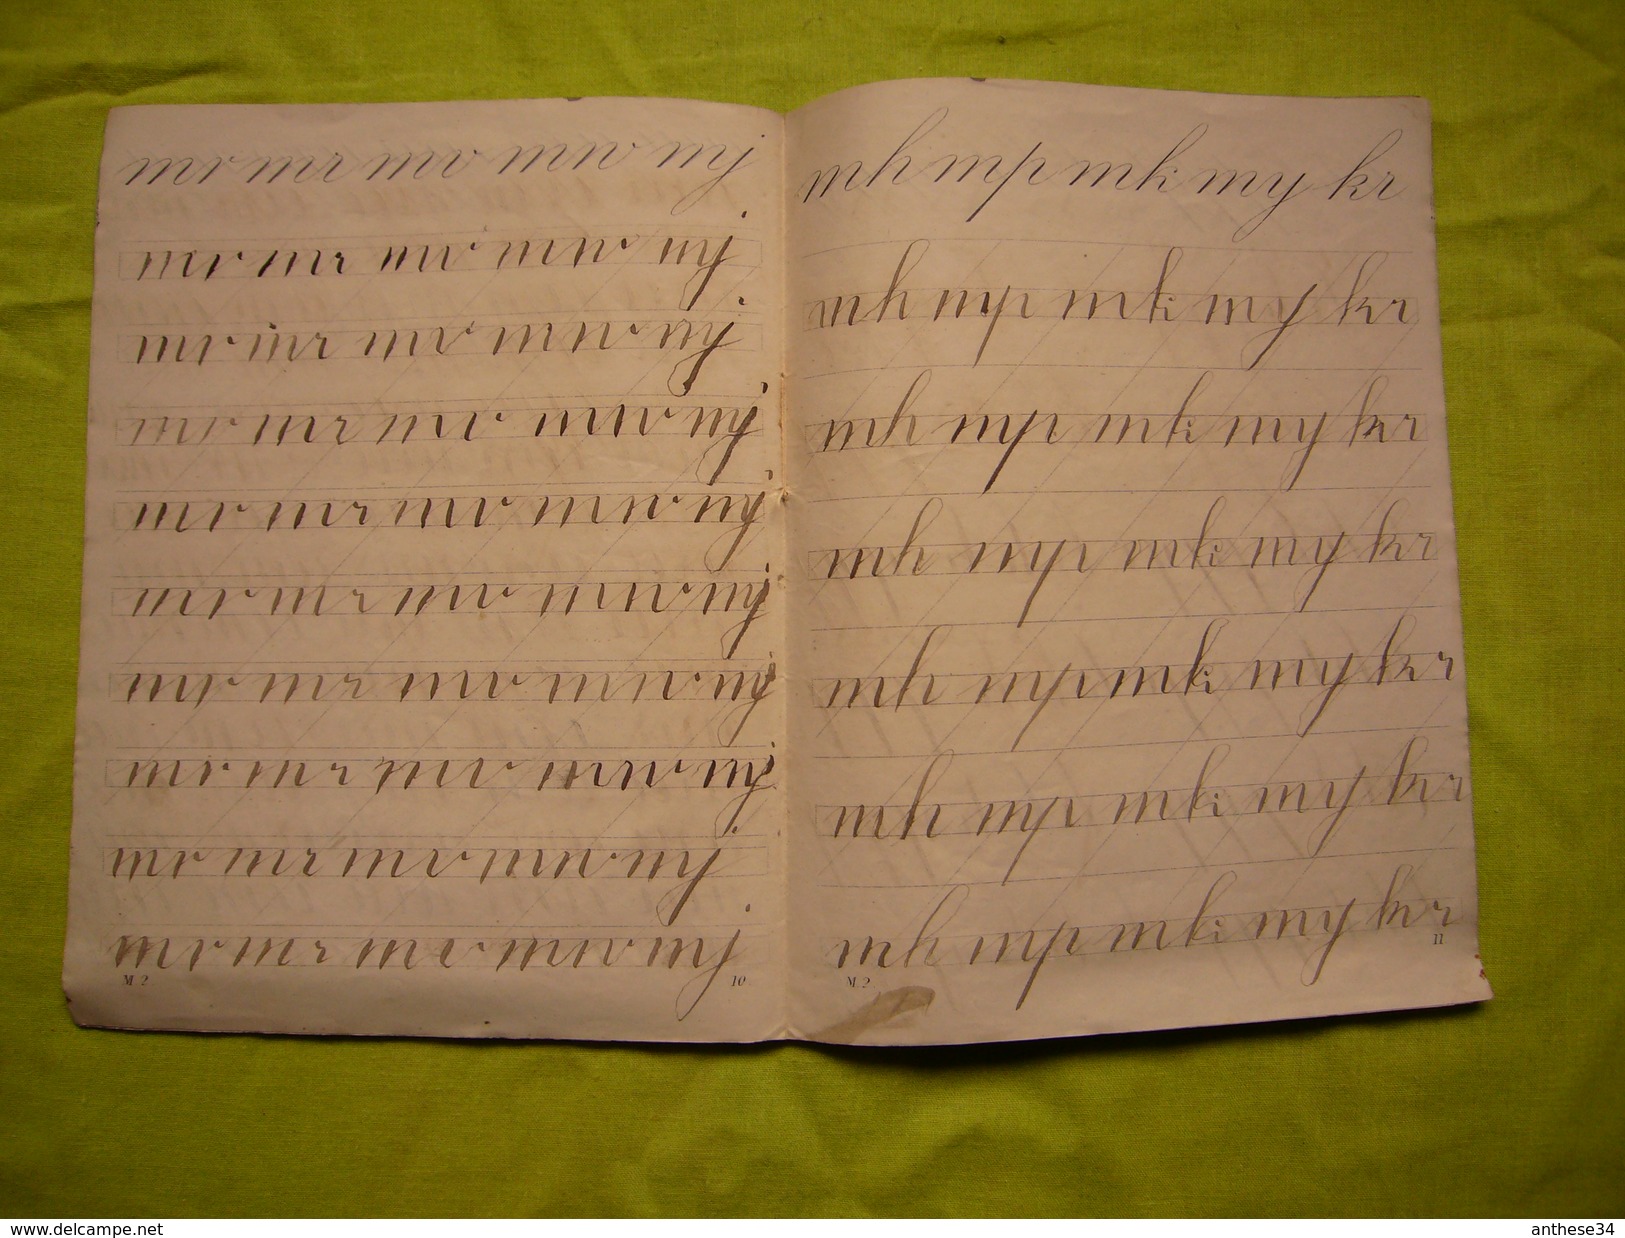 mr mr mv mw mj
mr mr mv mw mj
mr mr mv mw mj
mr mr mv mw mj
mr mr mv mw mj
mr mr mv mw mj
mr mr mv mw mj
mr mr mv mw mj
mr mr mv mw mj
mr mr mv mw mj
M 2 10
mh mp mk my kr
mh mp mk my kr
mh mp mk my kr
mh mp mk my kr
mh mp mk my kr
mh mp mk my kr
mh mp mk my kr
M 2 11
www.delcampe.net anthese34